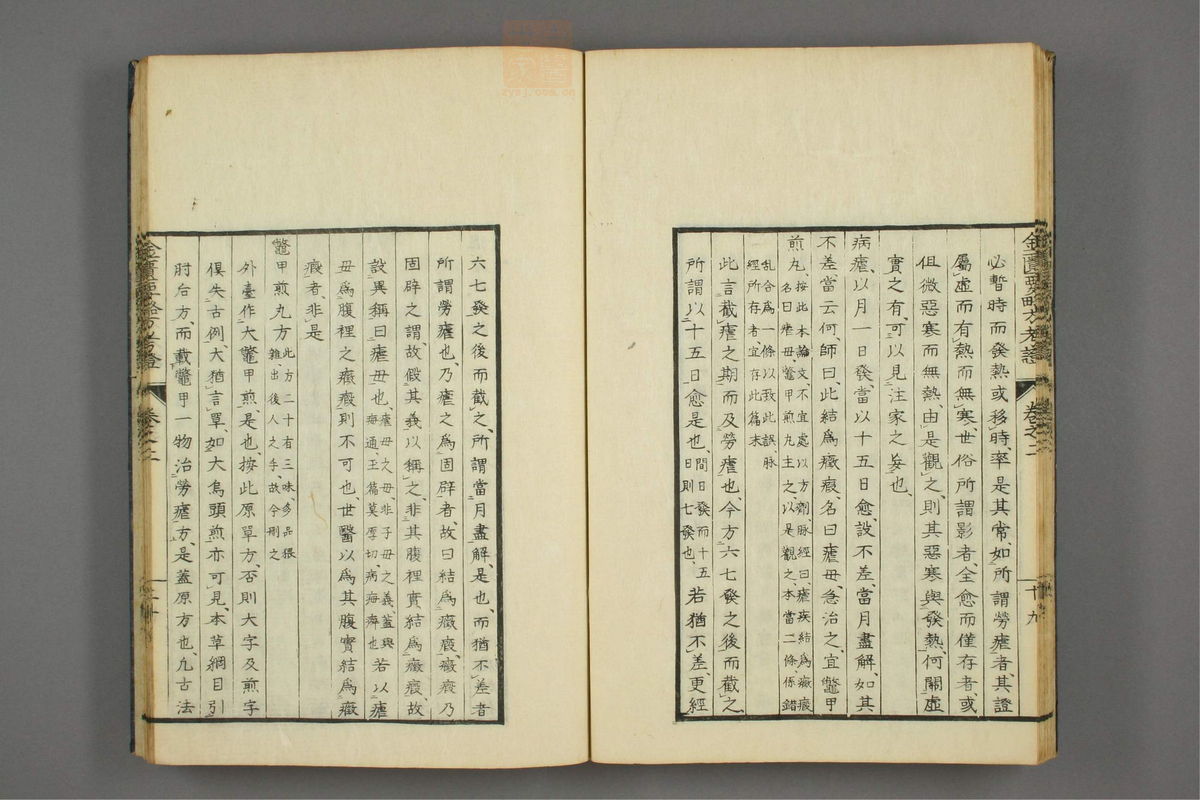 金匱要略方考證 卷之二 十九
必暫時而發熱或移時、率是其常、如所謂勞瘧者、其證
屬虛而有熱而無寒、世俗所謂影者、全愈而僅存者或
但微惡寒而無熱、由是觀之、則其惡寒與發熱、何關虛
實之有、可以見注家之妄也、
病瘧、以月一日發、當以十五日愈設不差、當月盡解、如其
不差當云何、師曰、此結爲癥瘕、名曰瘧母、急治之、宜鱉甲
煎丸、按此本論文、不宜處以方劑、脉經曰、瘧疾結爲癥瘕
名曰瘧母、鱉甲煎丸主之、以是觀之、本當二條、係錯
亂合爲一條、以致此誤、脉
經所存者、宜存此篇末
此言截瘧之期、而及勞瘧也、今方六七發之後而截之、
所謂以十五日愈是也、間日發而十五
日則七發也、若猶不差、更經
六七發之後而截之、所謂當月盡解、是也、而猶不差者
所謂勞瘧也、乃瘧之爲固辟者、故曰結爲癥瘕、癥瘕乃
固辟之謂、故假其義以稱之、非其腹裡實結爲癥瘕、故
設異稱曰瘧母也、瘧母之母、非子母之義、蓋與
痗通、玉篇莫厚切、病痗癖也、若以瘧
母爲腹裡之癥瘕則不可也、世醫以爲其腹實結爲癥
瘕者、非是
鱉甲煎丸方 此方二十有三味、多品猥
雜、出後人之手故今刪之
外臺作大鱉甲煎、是也、按此原單方、否則大字及煎字
俱失古例、大猶言單、如大烏頭煎、亦可見、本草綱目引
肘后方、而載鱉甲一物治勞瘧方、是蓋原方也、凡古法
金匱要略方考證 卷之二 二十